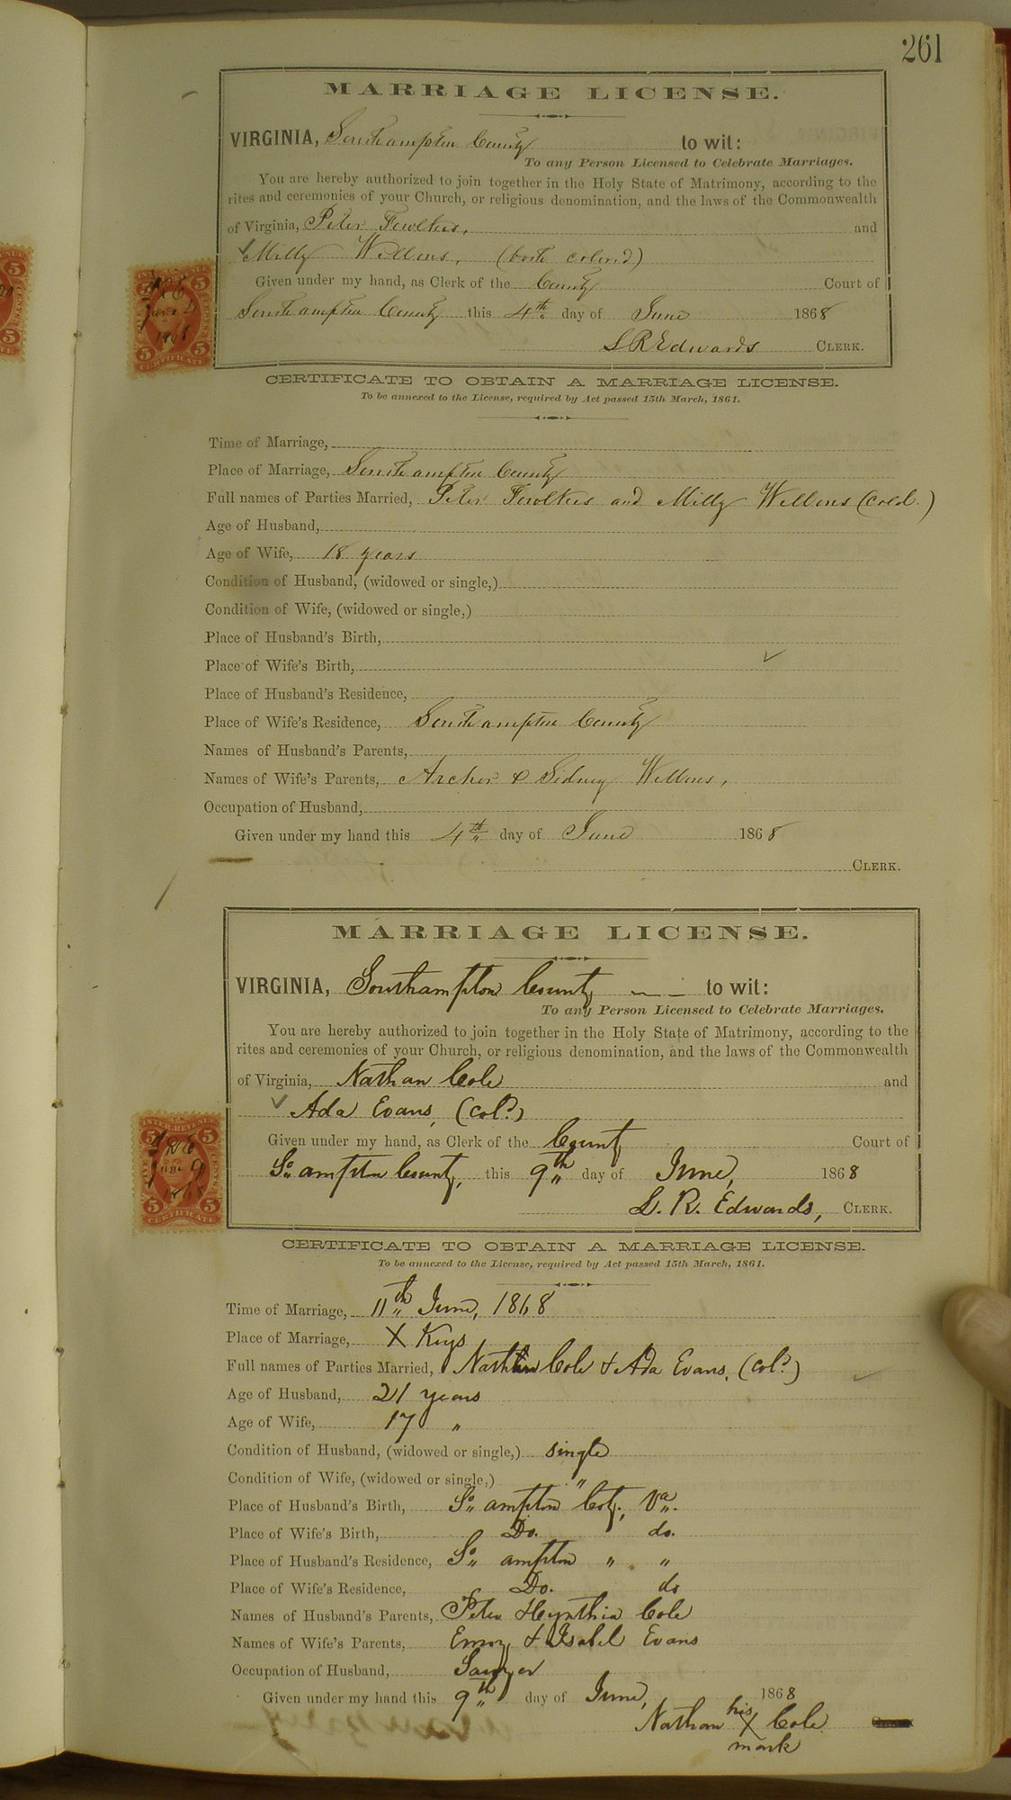 261
MARRIAGE LICENSE.
VIRGINIA, Southampton County to wil:
To any Person Licensed to Celebrate Marriages.
You are hereby authorized to join together in the Holy State of Matrimony, according to the
rites and ceremonies of your Church, or religious denomination, and the laws of the Commonwealth
of Virginia, Peter and
Milly (both colored)
Given under my hand, as Clerk of the County Court of
Southampton County this 4th day of June 1868
L R Edwards CLERK.
CERTIFICATE TO OBTAIN A MARRIAGE LICENSE.
To be annexed to the License, required by Act passed 15th March, 1861.
Time of Marriage,
Place of Marriage, Southampton County
Full names of Parties Married, Peter and Milly (cold.)
Age of Husband,
Age of Wife, 18 years
Condition of Husband, (widowed or single,)
Condition of Wife, (widowed or single,)
Place of Husband's Birth,
Place of Wife's Birth,
Place of Husband's Residence,
Place of Wife's Residence, Southampton County
Names of Husband's Parents,
Names of Wife's Parents, Archer & Sidney
Occupation of Husband,
Given under my hand this 4th day of June 1868
CLERK.
MARRIAGE LICENSE.
VIRGINIA, Southampton County to wil:
To any Person Licensed to Celebrate Marriages.
You are hereby authorized to join together in the Holy State of Matrimony, according to the
rites and ceremonies of your Church, or religious denomination, and the laws of the Commonwealth
of Virginia, Nathan Cole and
Ada Evans, (Cold)
Given under my hand, as Clerk of the County Court of
So"ampton County, this 9th day of June, 1868
L. R. Edwards, CLERK.
CERTIFICATE TO OBTAIN A MARRIAGE LICENSE.
To be annexed to the License, required by Act passed 15th March, 1861.
Time of Marriage, 11th June, 1868
Place of Marriage, X Keys
Full names of Parties Married, Nathan Cole & Ada Evans, (Cold)
Age of Husband, 21 years
Age of Wife, 17 "
Condition of Husband, (widowed or single,) single
Condition of Wife, (widowed or single,) "
Place of Husband's Birth, So"ampton Coty, Va.
Place of Wife's Birth, Do. do.
Place of Husband's Residence, So"ampton " "
Place of Wife's Residence, Do. do
Names of Husband's Parents, Peter & Cynthia Cole
Names of Wife's Parents, & Isabel Evans
Occupation of Husband, Sawyer
Given under my hand this 9th day of June, 1868
Nathan his X mark Cole